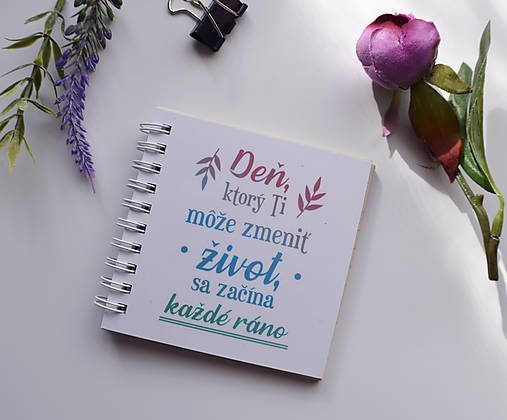 Deň,
ktorý Ti
môže zmeniť
život,
sa začína
každé ráno